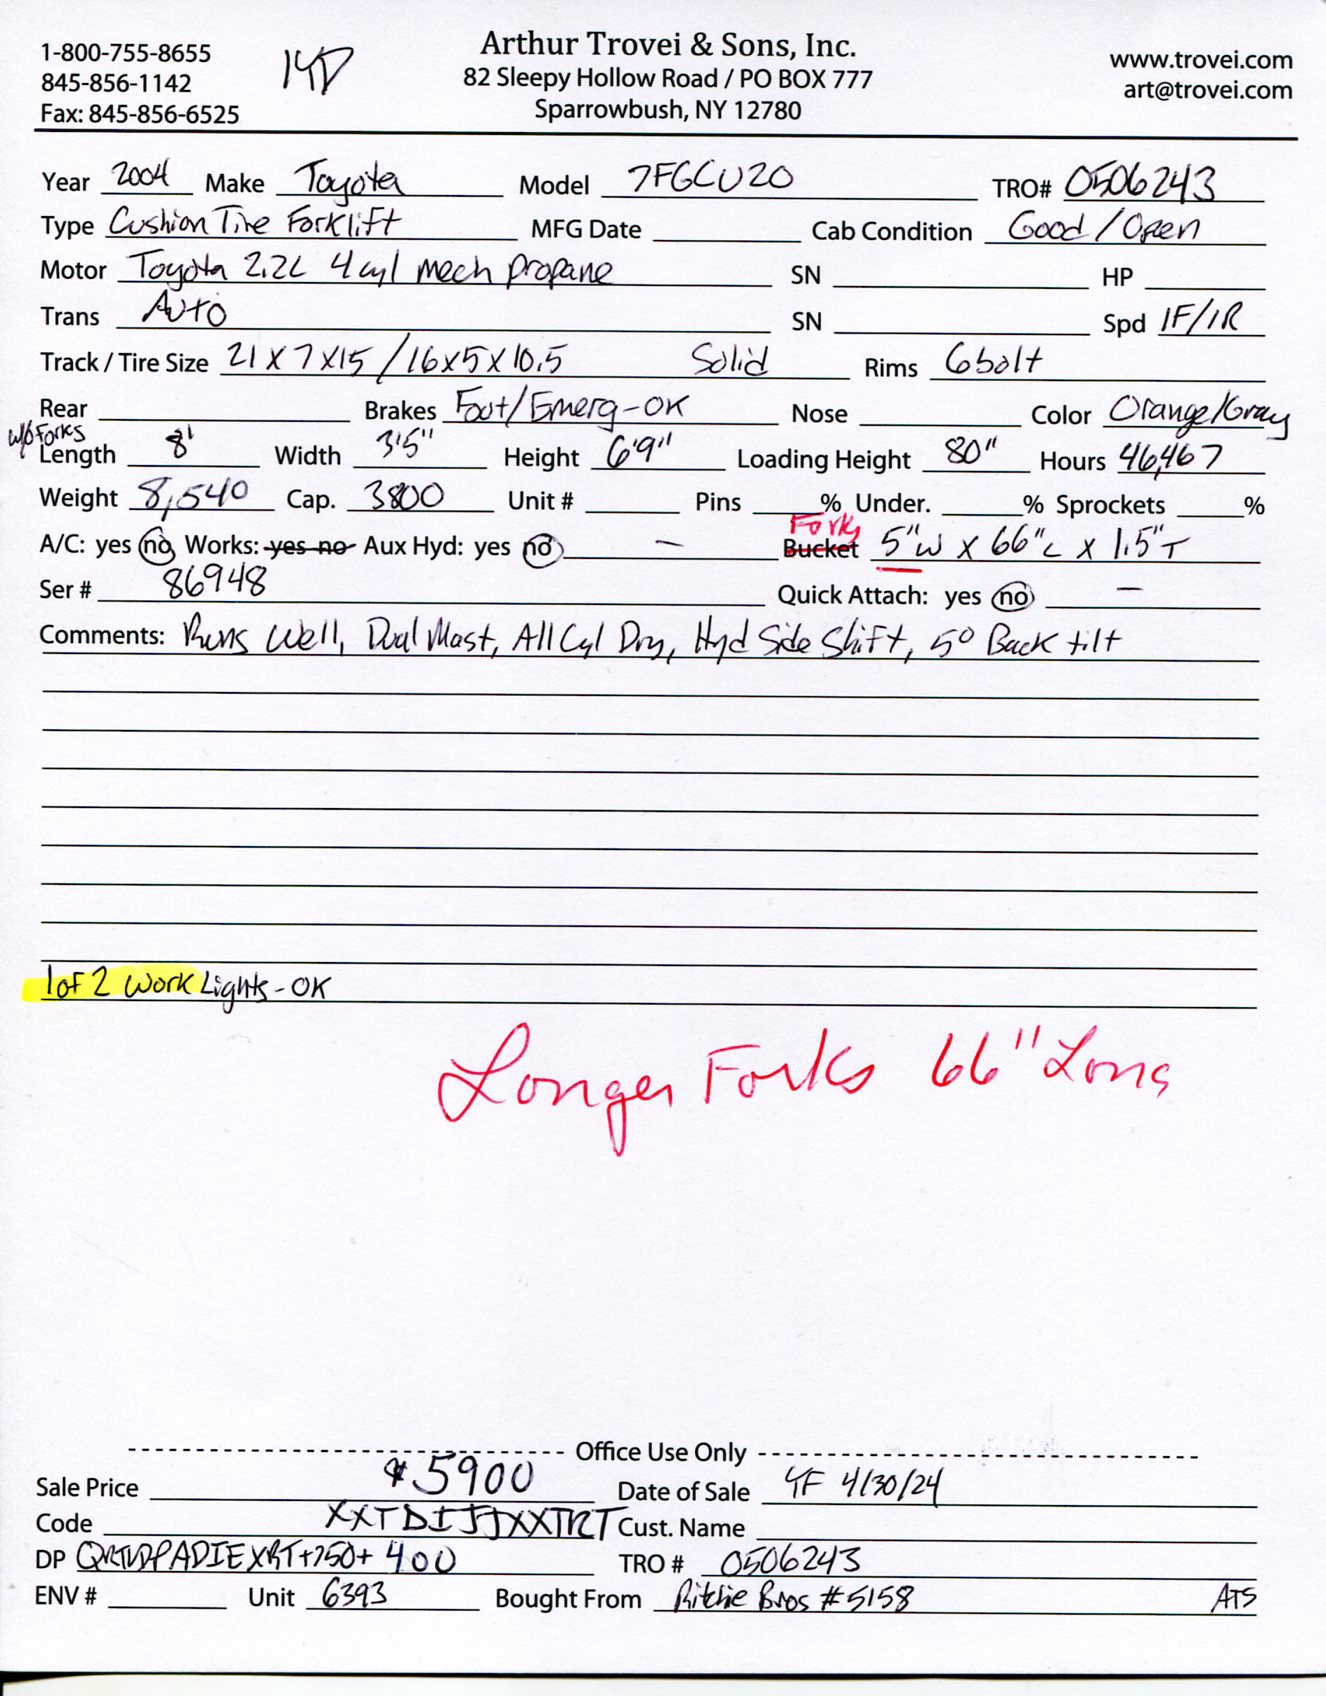 1-800-755-8655
845-856-1142
Fax: 845-856-6525
Arthur Trovei & Sons, Inc.
82 Sleepy Hollow Road / PO BOX 777
Sparrowbush, NY 12780
www.trovei.com
art@trovei.com
Year 2004 Make Toyota Model 7FGCU20 TRO# 0506243
Type Cushion Tire Forklift MFG Date Cab Condition Good / Open
Motor Toyota 2.2L 4cyl mech propane SN HP
Trans Auto SN Spd 1F/1R
Track / Tire Size 21 x 7 x 15 / 16 x 5 x 10.5 Solid Rims 6 bolt
Rear Brakes Foot/Emerg-OK Nose Color Orange/Gray
w/o Forks
Length 8' Width 3'5" Height 6'9" Loading Height 80" Hours 46,467
Weight 8,540 Cap. 3800 Unit # Pins % Under. % Sprockets %
Forks
A/C: yes no Works: yes no Aux Hyd: yes no – Bucket 5"W x 66"L x 1.5"T
Ser # 86948 Quick Attach: yes no –
Comments: Runs Well, Dual Mast, All Cyl Dry, Hyd Side Shift, 5° Back tilt
1 of 2 Work Lights - OK
Longer Forks 66" Long
Office Use Only
Sale Price $5900 Date of Sale YF 4/30/24
Code Cust. Name
DP +750+ 400 TRO # 0506243
ENV # Unit 6393 Bought From Ritchie Bros #5158 ATS